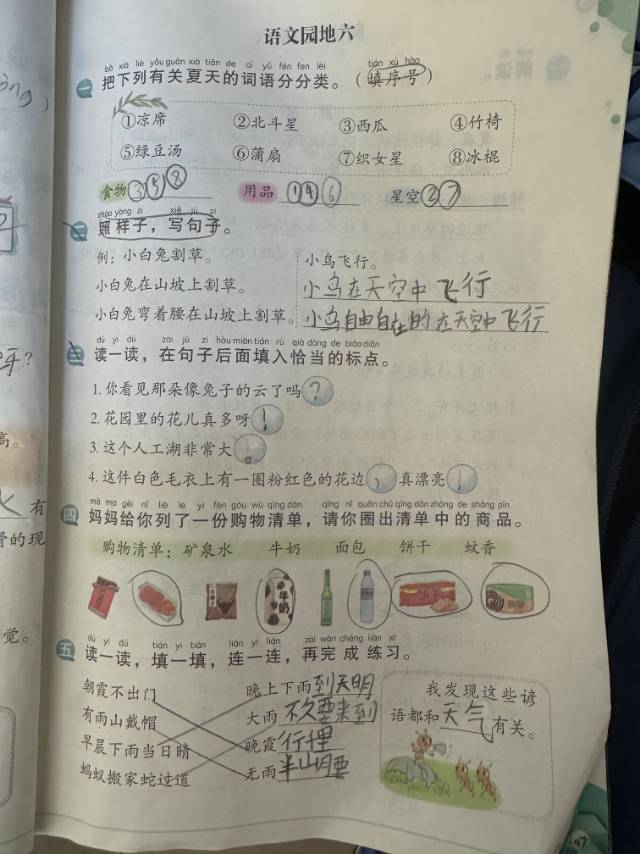 语文园地六
bǎ xià liè yǒu guān xià tiān de cí yǔ fēn fēn lèi tián xù hào
一 把下列有关夏天的词语分分类。（填序号）
①凉席 ②北斗星 ③西瓜 ④竹椅
⑤绿豆汤 ⑥蒲扇 ⑦织女星 ⑧冰棍
食物 ③⑤⑧ 用品 ①④⑥ 星空 ②⑦
zhào yàng zi xiě jù zi
二 照样子，写句子。
例：小白兔割草。 小鸟飞行。
小白兔在山坡上割草。 小鸟在天空中飞行
小白兔弯着腰在山坡上割草。 小鸟自由自在的在天空中飞行
dú yi dú zài jù zi hòu miàn tián rù qià dàng de biāo diǎn
三 读一读，在句子后面填入恰当的标点。
1.你看见那朵像兔子的云了吗？
2.花园里的花儿真多呀！
3.这个人工湖非常大。
4.这件白色毛衣上有一圈粉红色的花边，真漂亮！
mā ma gěi nǐ liè le yí fèn gòu wù qīng dān qǐng nǐ quān chū qīng dān zhōng de shāng pǐn
四 妈妈给你列了一份购物清单，请你圈出清单中的商品。
购物清单：矿泉水 牛奶 面包 饼干 蚊香
牛奶
dú yi dú tián yi tián lián yi lián zài wán chéng liàn xí
五 读一读，填一填，连一连，再完成练习。
朝霞不出门 晚上下雨到天明
有雨山戴帽 大雨不久要来到
早晨下雨当日晴 晚霞行千里
蚂蚁搬家蛇过道 无雨半山腰
我发现这些谚
语都和天气有关。
97
呀？
高。
有
的现
觉。